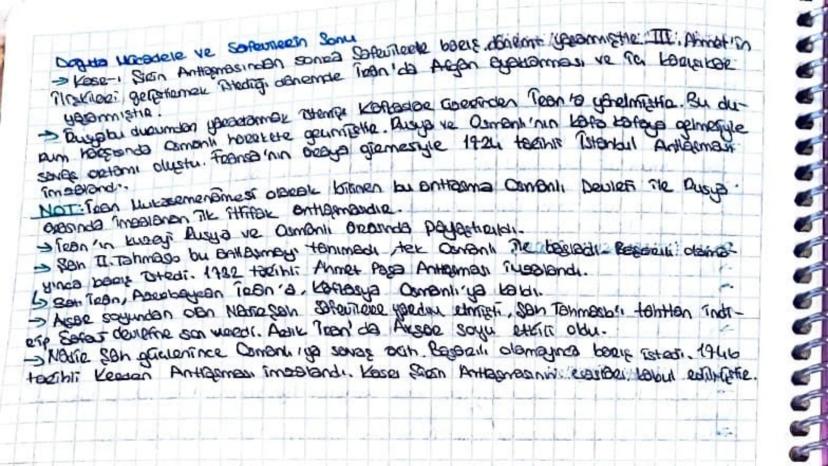 Doğuda Mücadele ve Safevilerin Sonu
→ Kasr-ı Şirin Antlaşmasından sonra Safevilerle barış dönemi yaşanmıştır. III. Ahmet'in
ilişkileri geliştirmek istediği dönemde İran'da Afgan ayaklanması ve iç karışıklar
yaşanmıştır.
→ Rusya bu durumdan yararlanmak istemiş Kafkaslar üzerinden İran'a yönelmiştir. Bu du-
rum karşısında Osmanlı harekete geçmiştir. Rusya ve Osmanlı'nın kafa kafaya gelmesiyle
savaş ortamı oluştu. Fransa'nın araya girmesiyle 1724 tarihli İstanbul Antlaşması
imzalandı.
NOT: İran Mukasemenamesi olarak bilinen bu antlaşma Osmanlı Devleti ile Rusya
arasında imzalanan ilk ittifak antlaşmasıdır.
→ İran'ın kuzeyi Rusya ve Osmanlı arasında paylaştırıldı.
→ Şah II. Tahmasb bu antlaşmayı tanımadı, tek Osmanlı ile başladı. Başarılı olama-
yınca barış istedi. 1732 tarihli Ahmet Paşa Antlaşması imzalandı.
↳ Batı İran, Azerbaycan İran'a, Kafkasya Osmanlı'ya kaldı.
→ Avşar soyundan olan Nadir Şah Safevilere yardım etmişti, Şah Tahmasb'ı tahttan indi-
rip Safavi devletine son verdi. Artık İran'da Avşar soyu etkili oldu.
→ Nadir Şah güçlenince Osmanlı'ya savaş açtı. Başarılı olamayınca barış istedi. 1746
tarihli Kerden Antlaşması imzalandı. Kasrı Şirin Antlaşmasının esasları kabul edilmiştir.